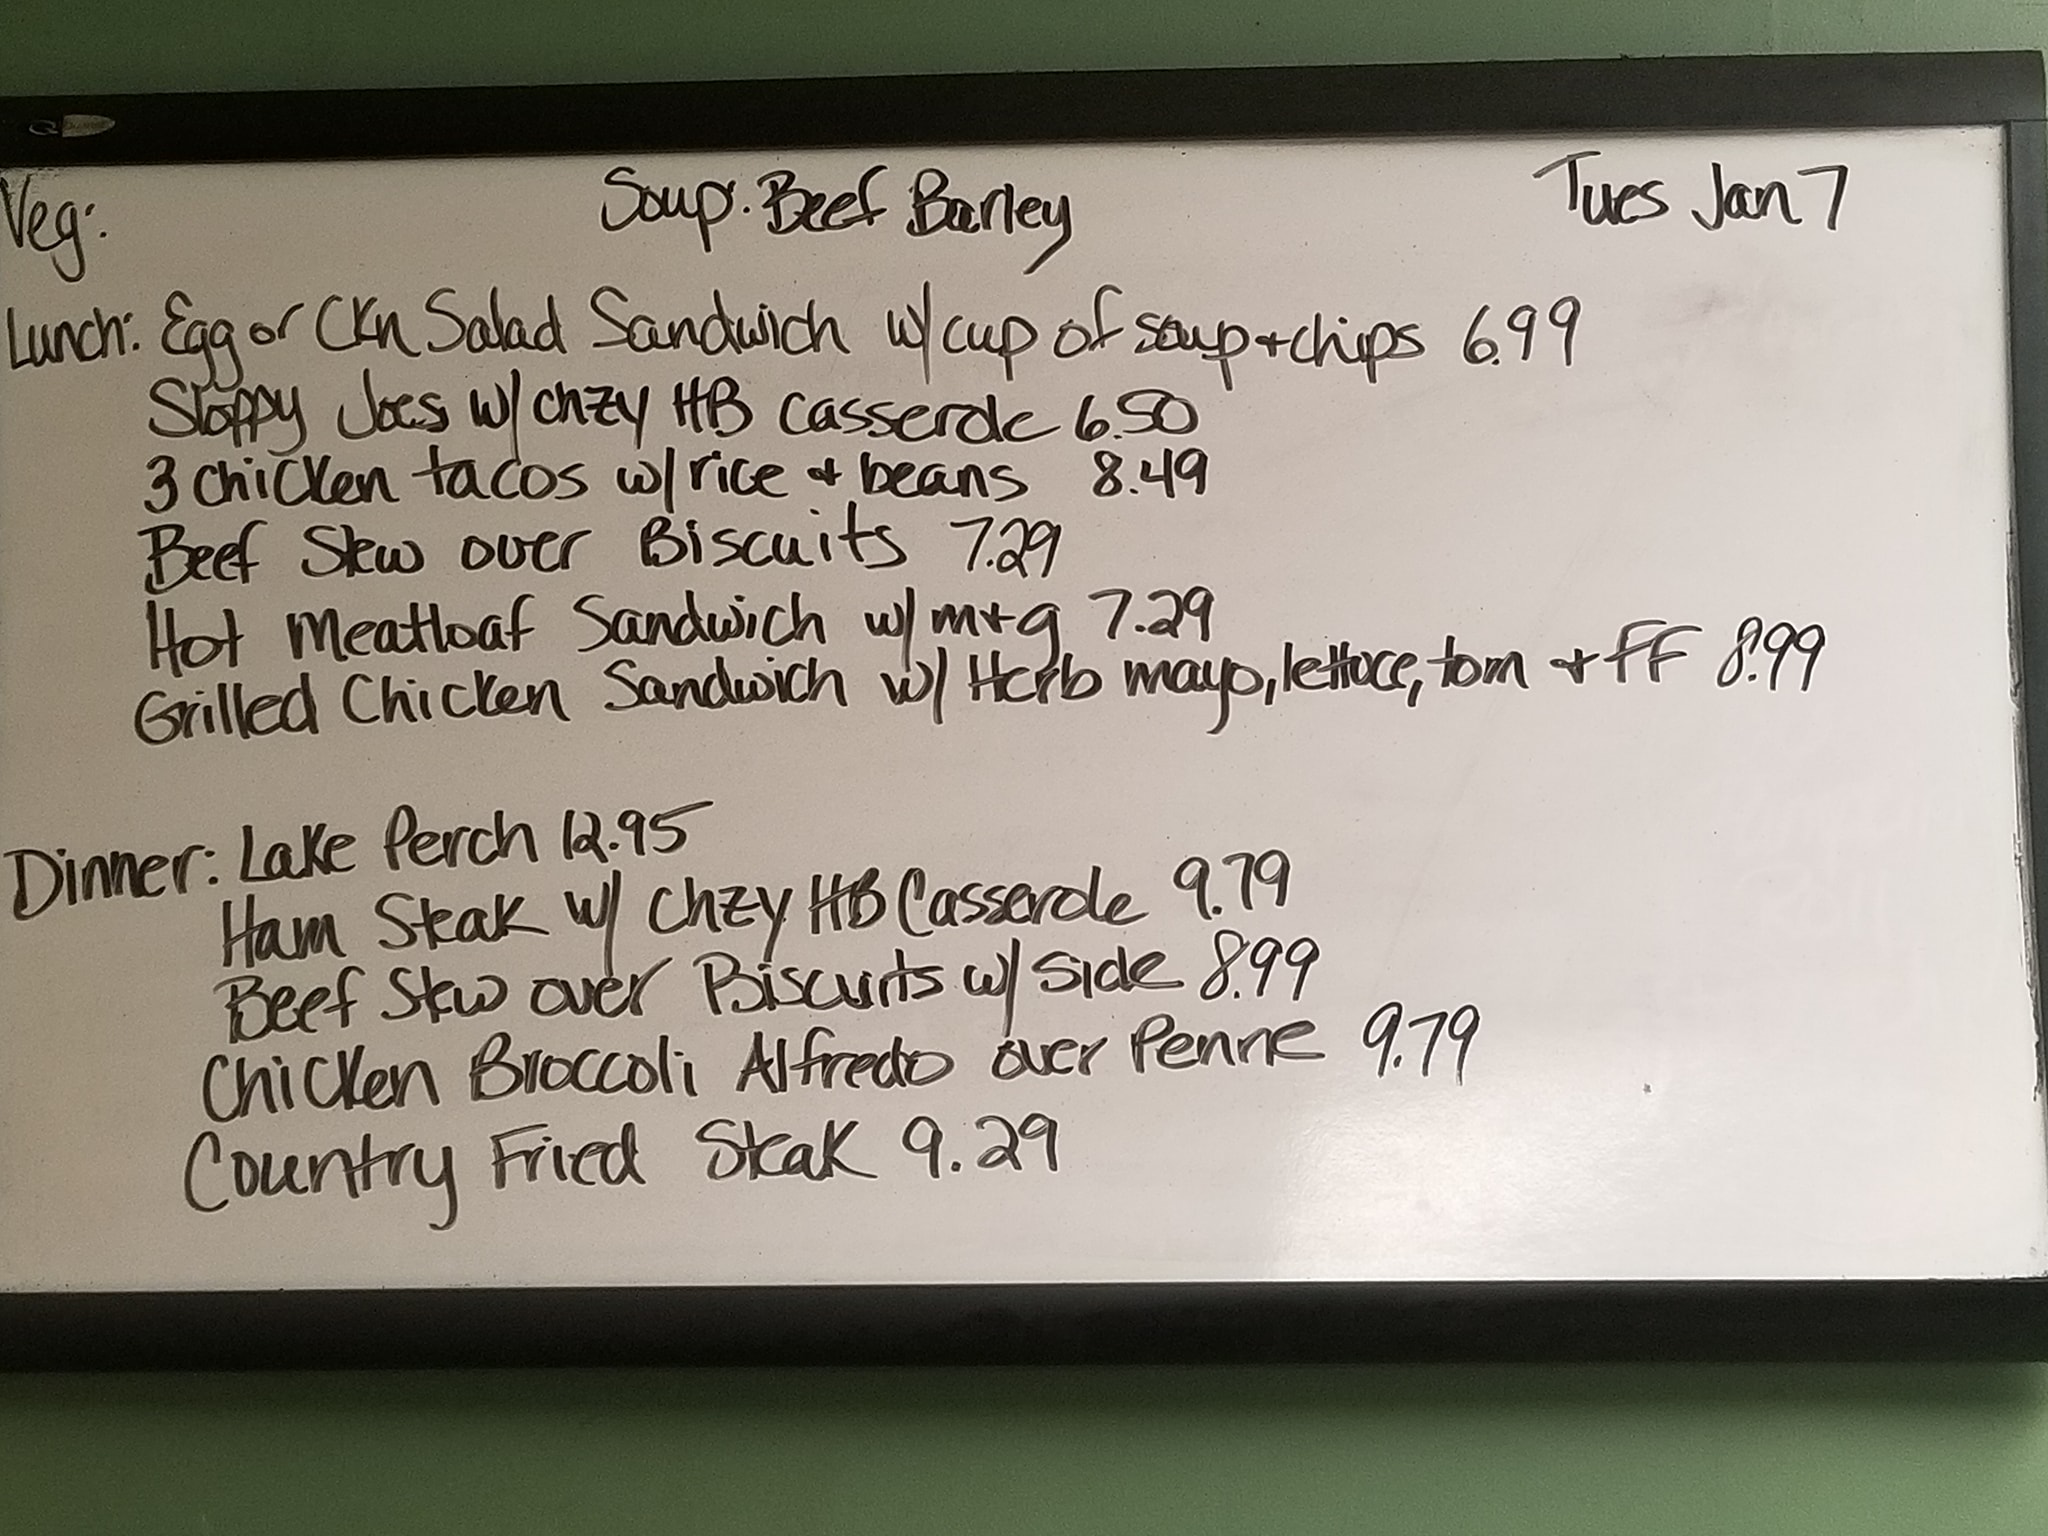 Veg: Soup: Beef Barley Tues Jan 7
Lunch: Egg or CKn Salad Sandwich w/ cup of soup + chips 6.99
Sloppy Joes w/ chzy HB casserole 6.50
3 chicken tacos w/ rice + beans 8.49
Beef Stew over Biscuits 7.29
Hot Meatloaf Sandwich w/ m+g 7.29
Grilled Chicken Sandwich w/ Herb mayo, lettuce, tom + FF 8.99
Dinner: Lake Perch 12.95
Ham Steak w/ Chzy HB Casserole 9.79
Beef Stew over Biscuits w/ side 8.99
Chicken Broccoli Alfredo over Penne 9.79
Country Fried Steak 9.29